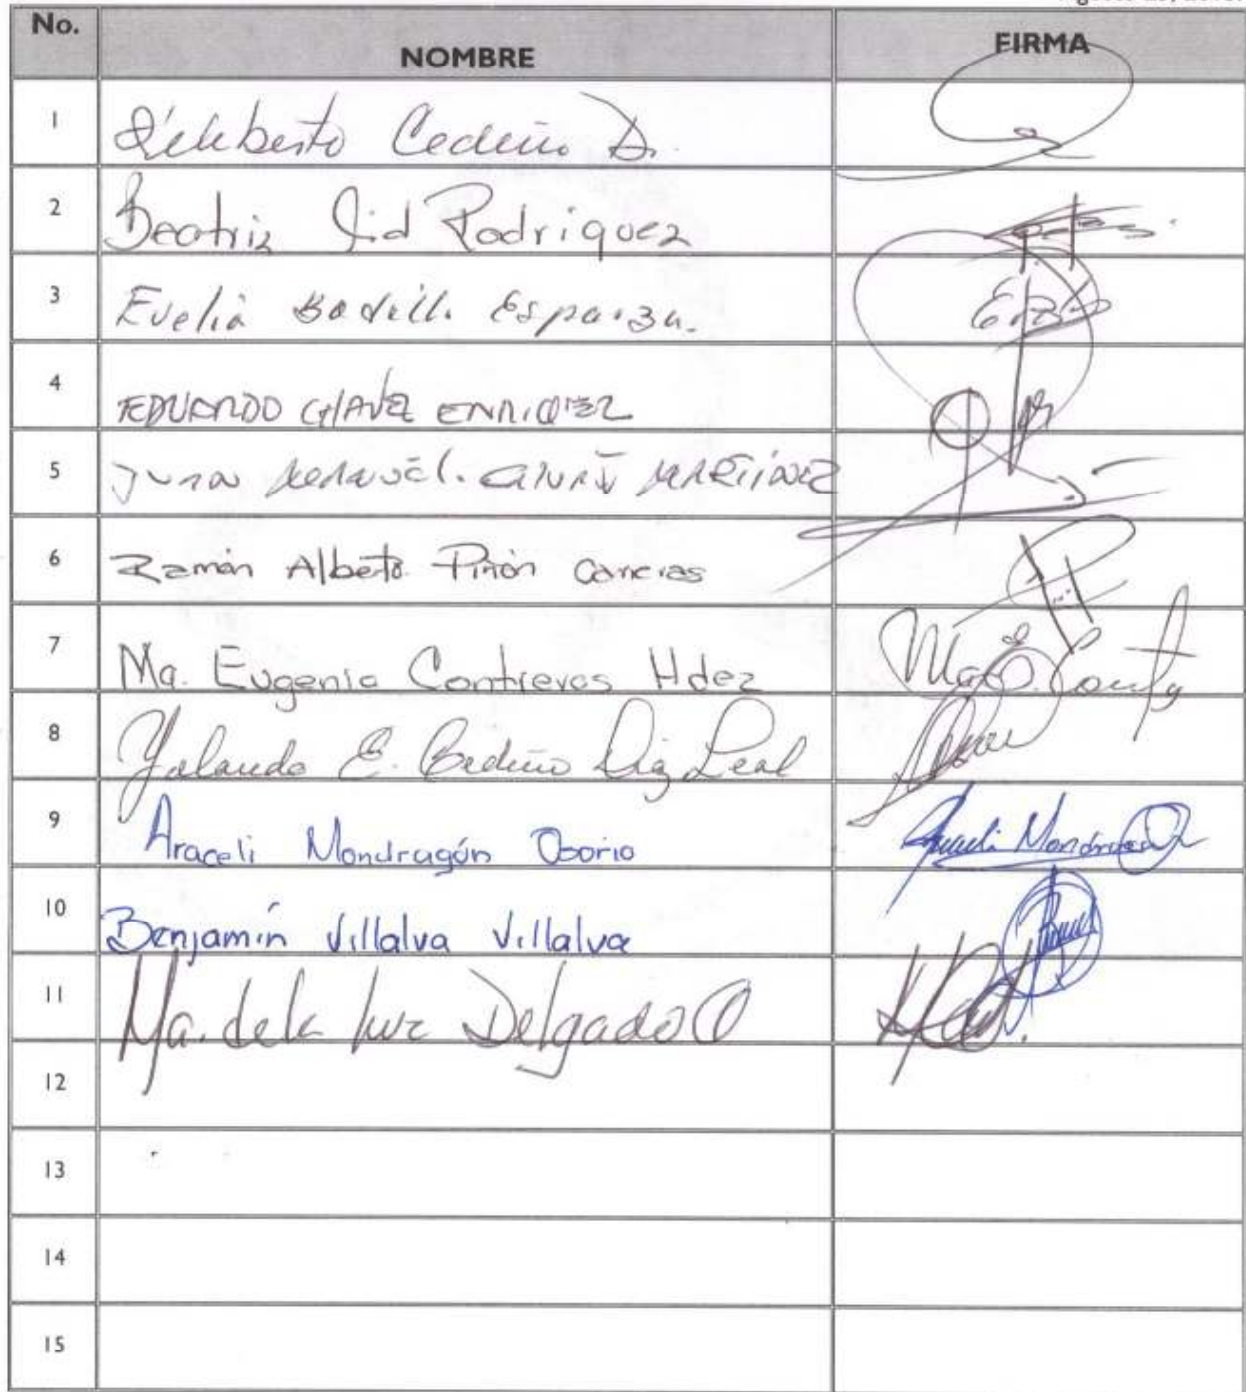 No. NOMBRE FIRMA
1 Cedeño D.
2 Beatriz Cid Rodriguez
3 Evelia Badillo Esparza.
4 EDUARDO CHAVEZ ENRIQUEZ
5 Juan Manuel. MARTINEZ
6 Ramón Alberto Piñón
7 Ma. Eugenia Contreras Hdez
8 Yolanda E. Cedeño Leal
9 Araceli Mondragón Osorio Araceli
10 Benjamín Villalva Villalva
11 Ma. de la Luz Delgado O
12
13
14
15